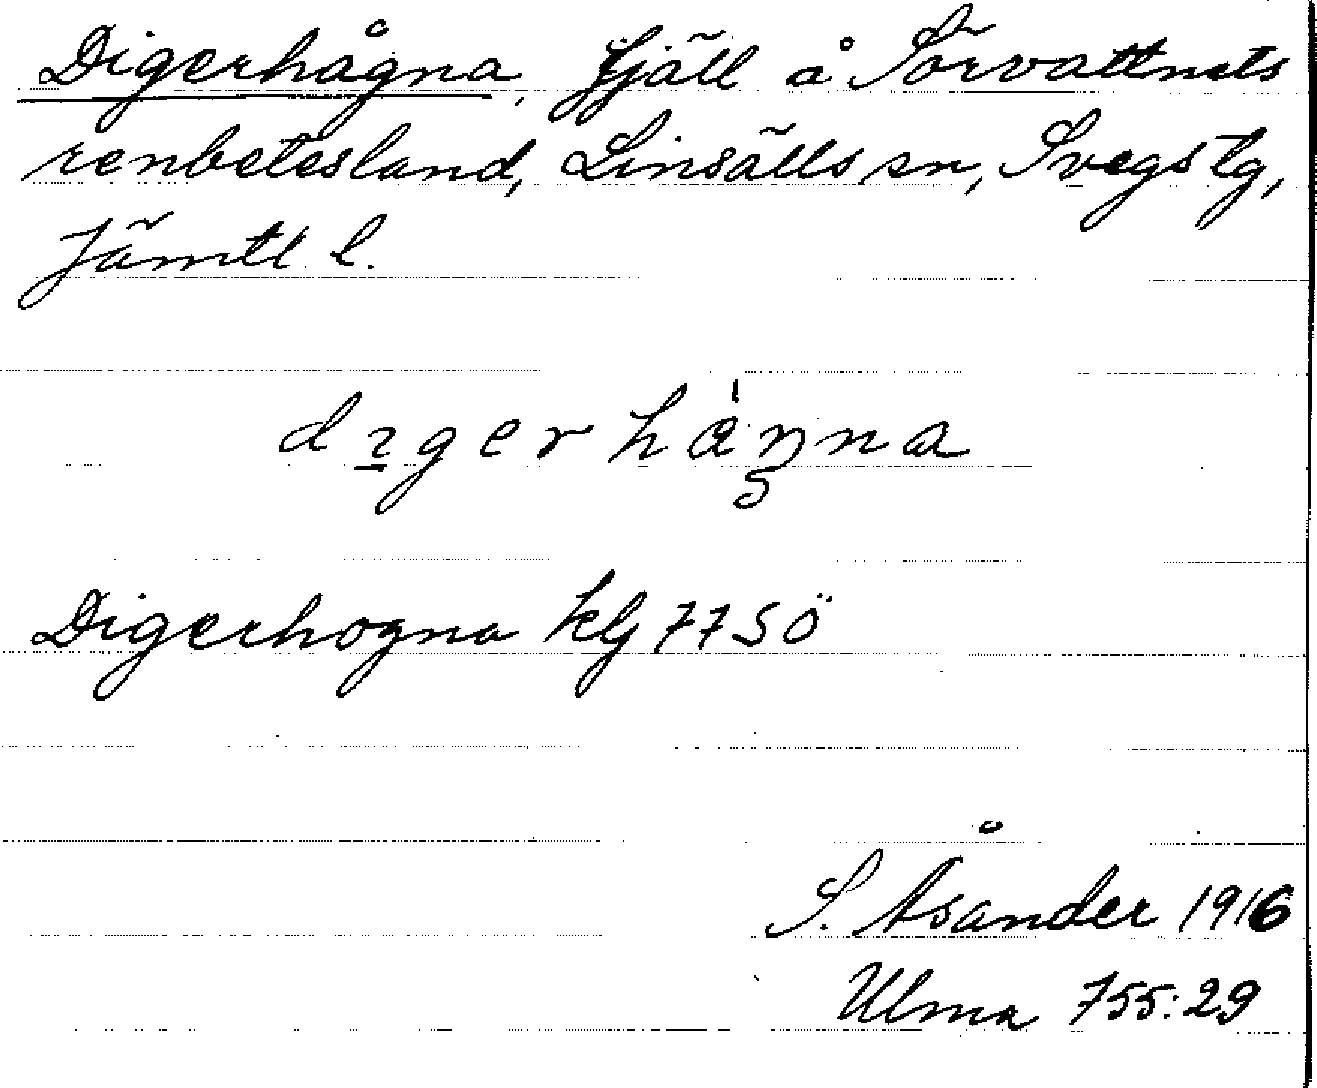 Digerhågna, fjäll å Sörvattnets
renbetesland, Linsälls sn, Svegs tg,
Jämtl. l.
Digerhogna kbl 77 SÖ
S. Åsander 1916
Ulma 755:29